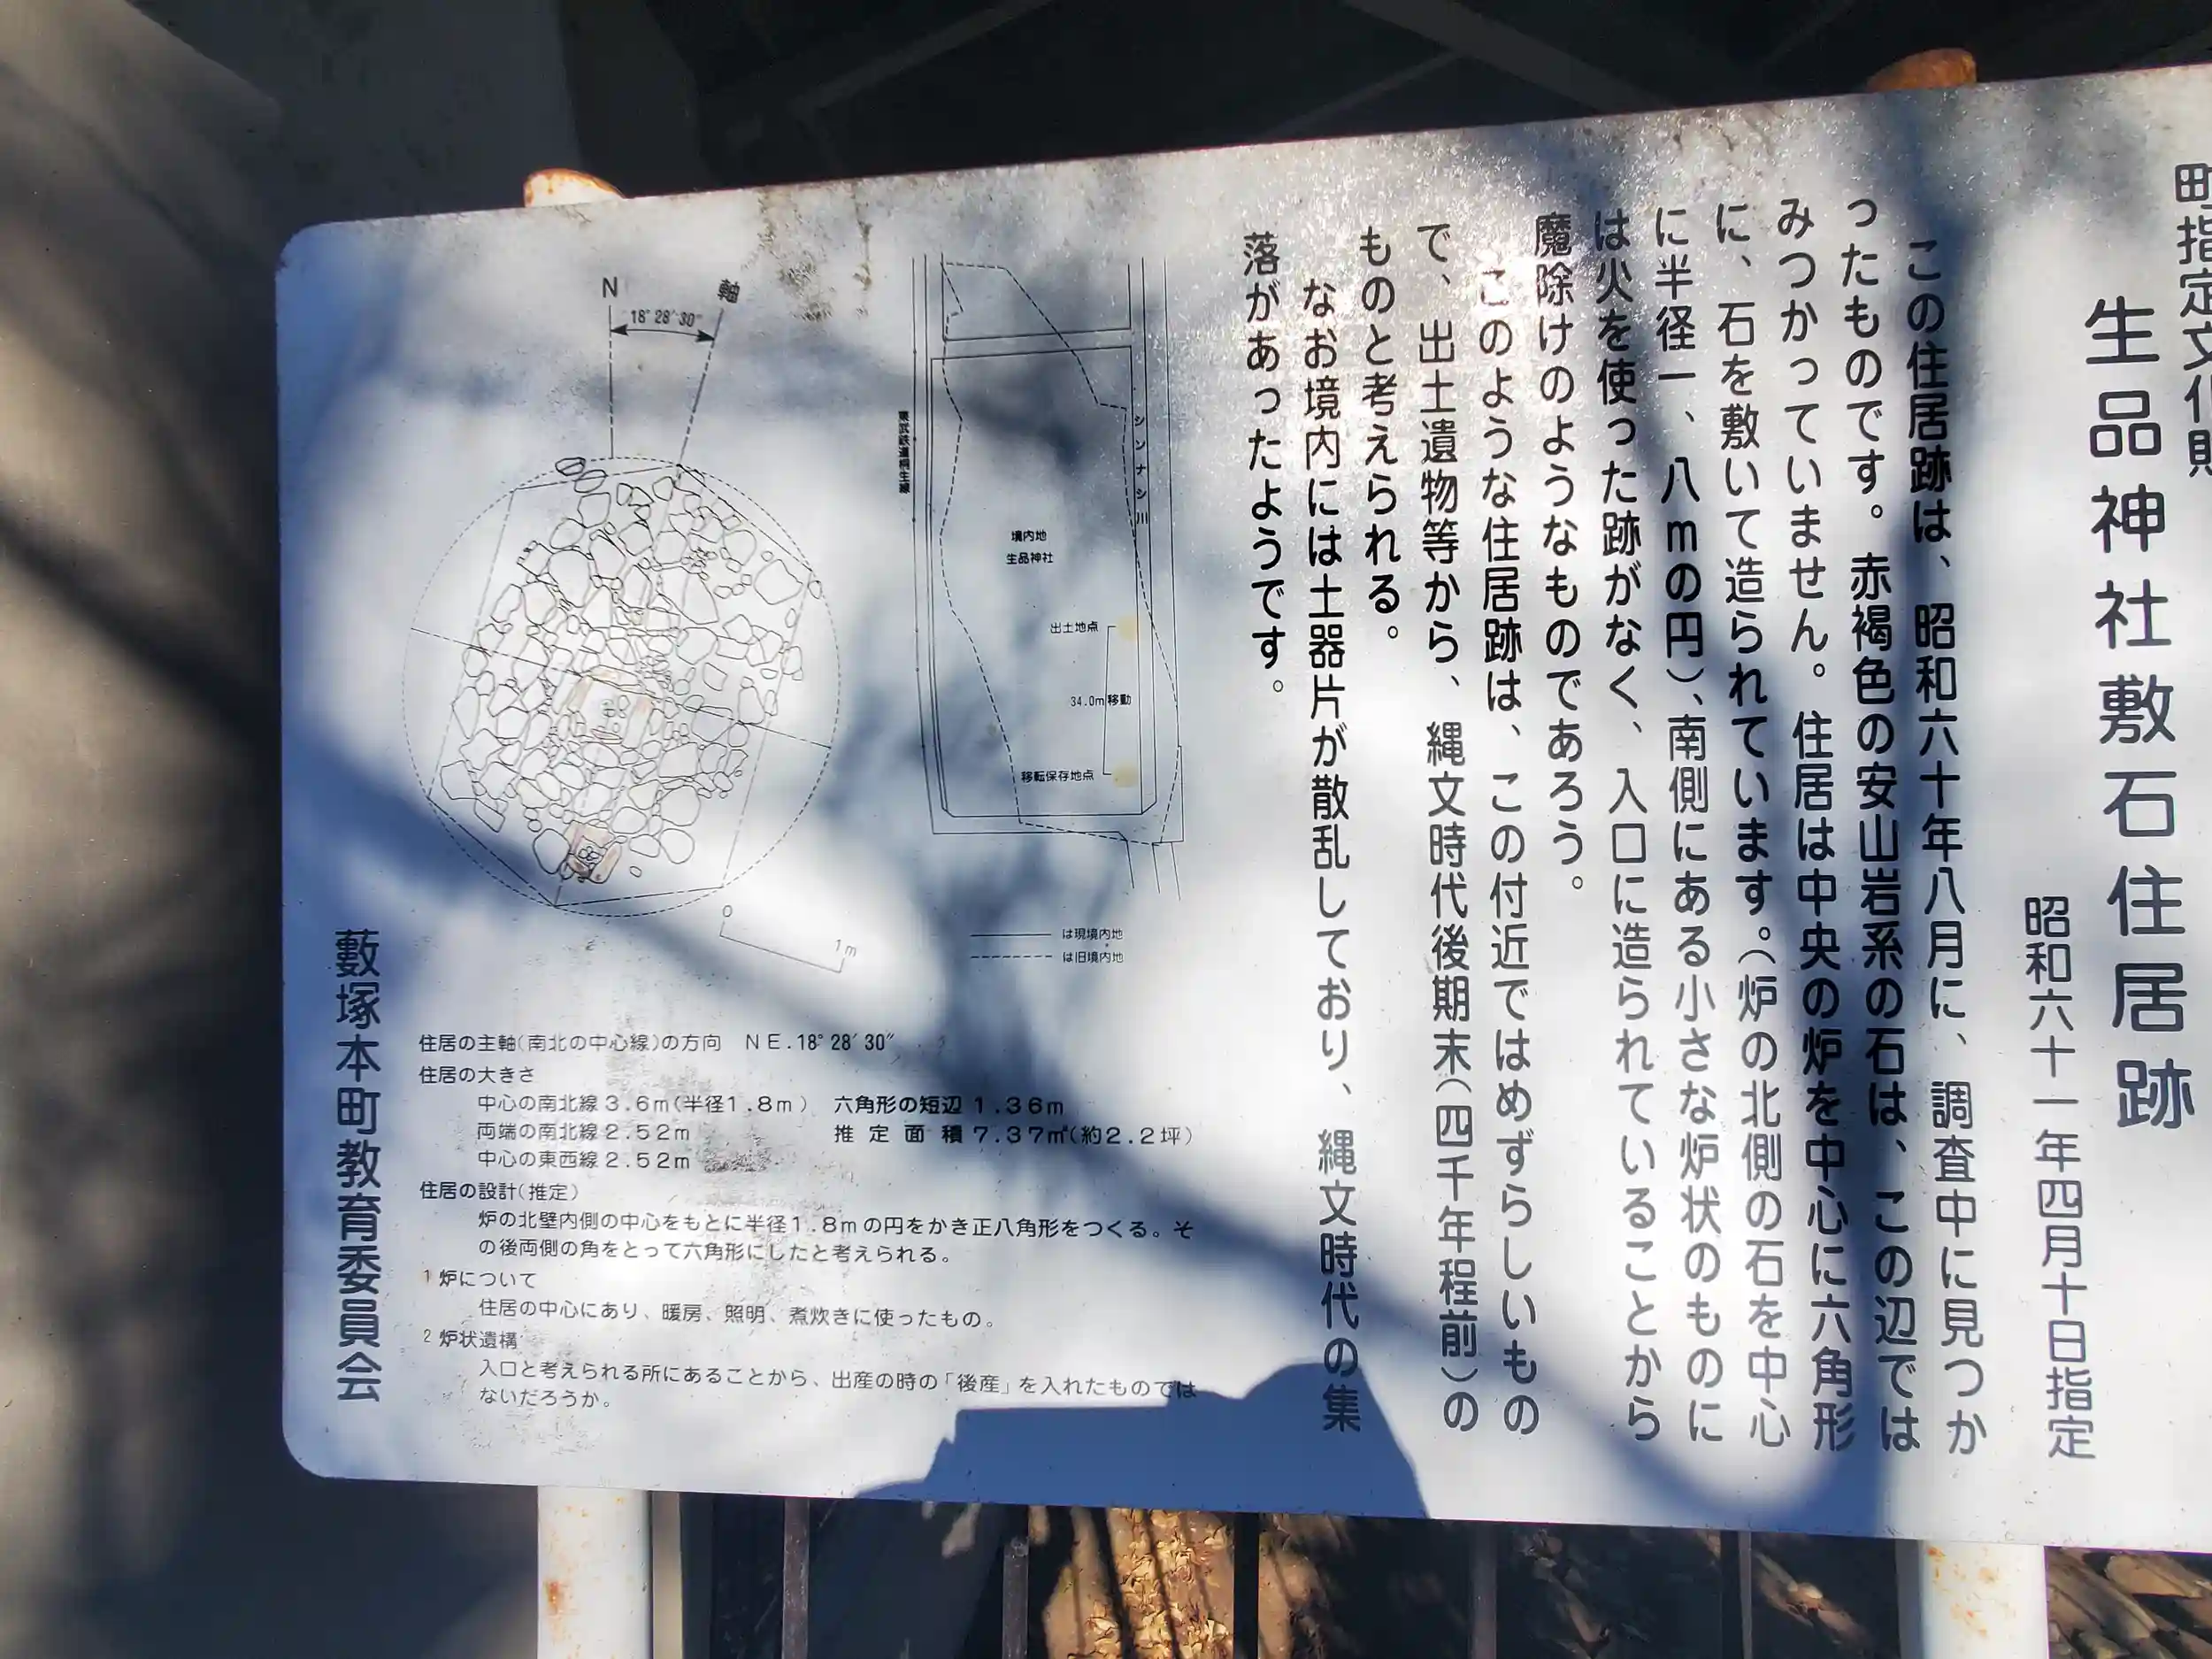 町指定文化財
生品神社敷石住居跡
昭和六十一年四月十日指定
この住居跡は、昭和六十年八月に、調査中に見つか
ったものです。赤褐色の安山岩系の石は、この辺では
みつかっていません。住居は中央の炉を中心に六角形
に、石を敷いて造られています。(炉の北側の石を中心
に半径一、八mの円)、南側にある小さな炉状のものに
は火を使った跡がなく、入口に造られていることから
魔除けのようなものであろう。
このような住居跡は、この付近ではめずらしいもの
で、出土遺物等から、縄文時代後期末(四千年程前)の
ものと考えられる。
なお境内には土器片が散乱しており、縄文時代の集
落があったようです。
東武鉄道桐生線
シンナシ川
境内地
生品神社
出土地点
34.0m移動
移転保存地点
は現境内地
は旧境内地
N
軸
18°28′30″
0
1m
住居の主軸(南北の中心線)の方向 NE.18°28′30″
住居の大きさ
中心の南北線3.6m(半径1.8m) 六角形の短辺1.36m
両端の南北線2.52m 推定面積7.37㎡(約2.2坪)
中心の東西線2.52m
住居の設計(推定)
炉の北壁内側の中心をもとに半径1.8mの円をかき正八角形をつくる。そ
の後両側の角をとって六角形にしたと考えられる。
1 炉について
住居の中心にあり、暖房、照明、煮炊きに使ったもの。
2 炉状遺構
入口と考えられる所にあることから、出産の時の「後産」を入れたものでは
ないだろうか。
藪塚本町教育委員会